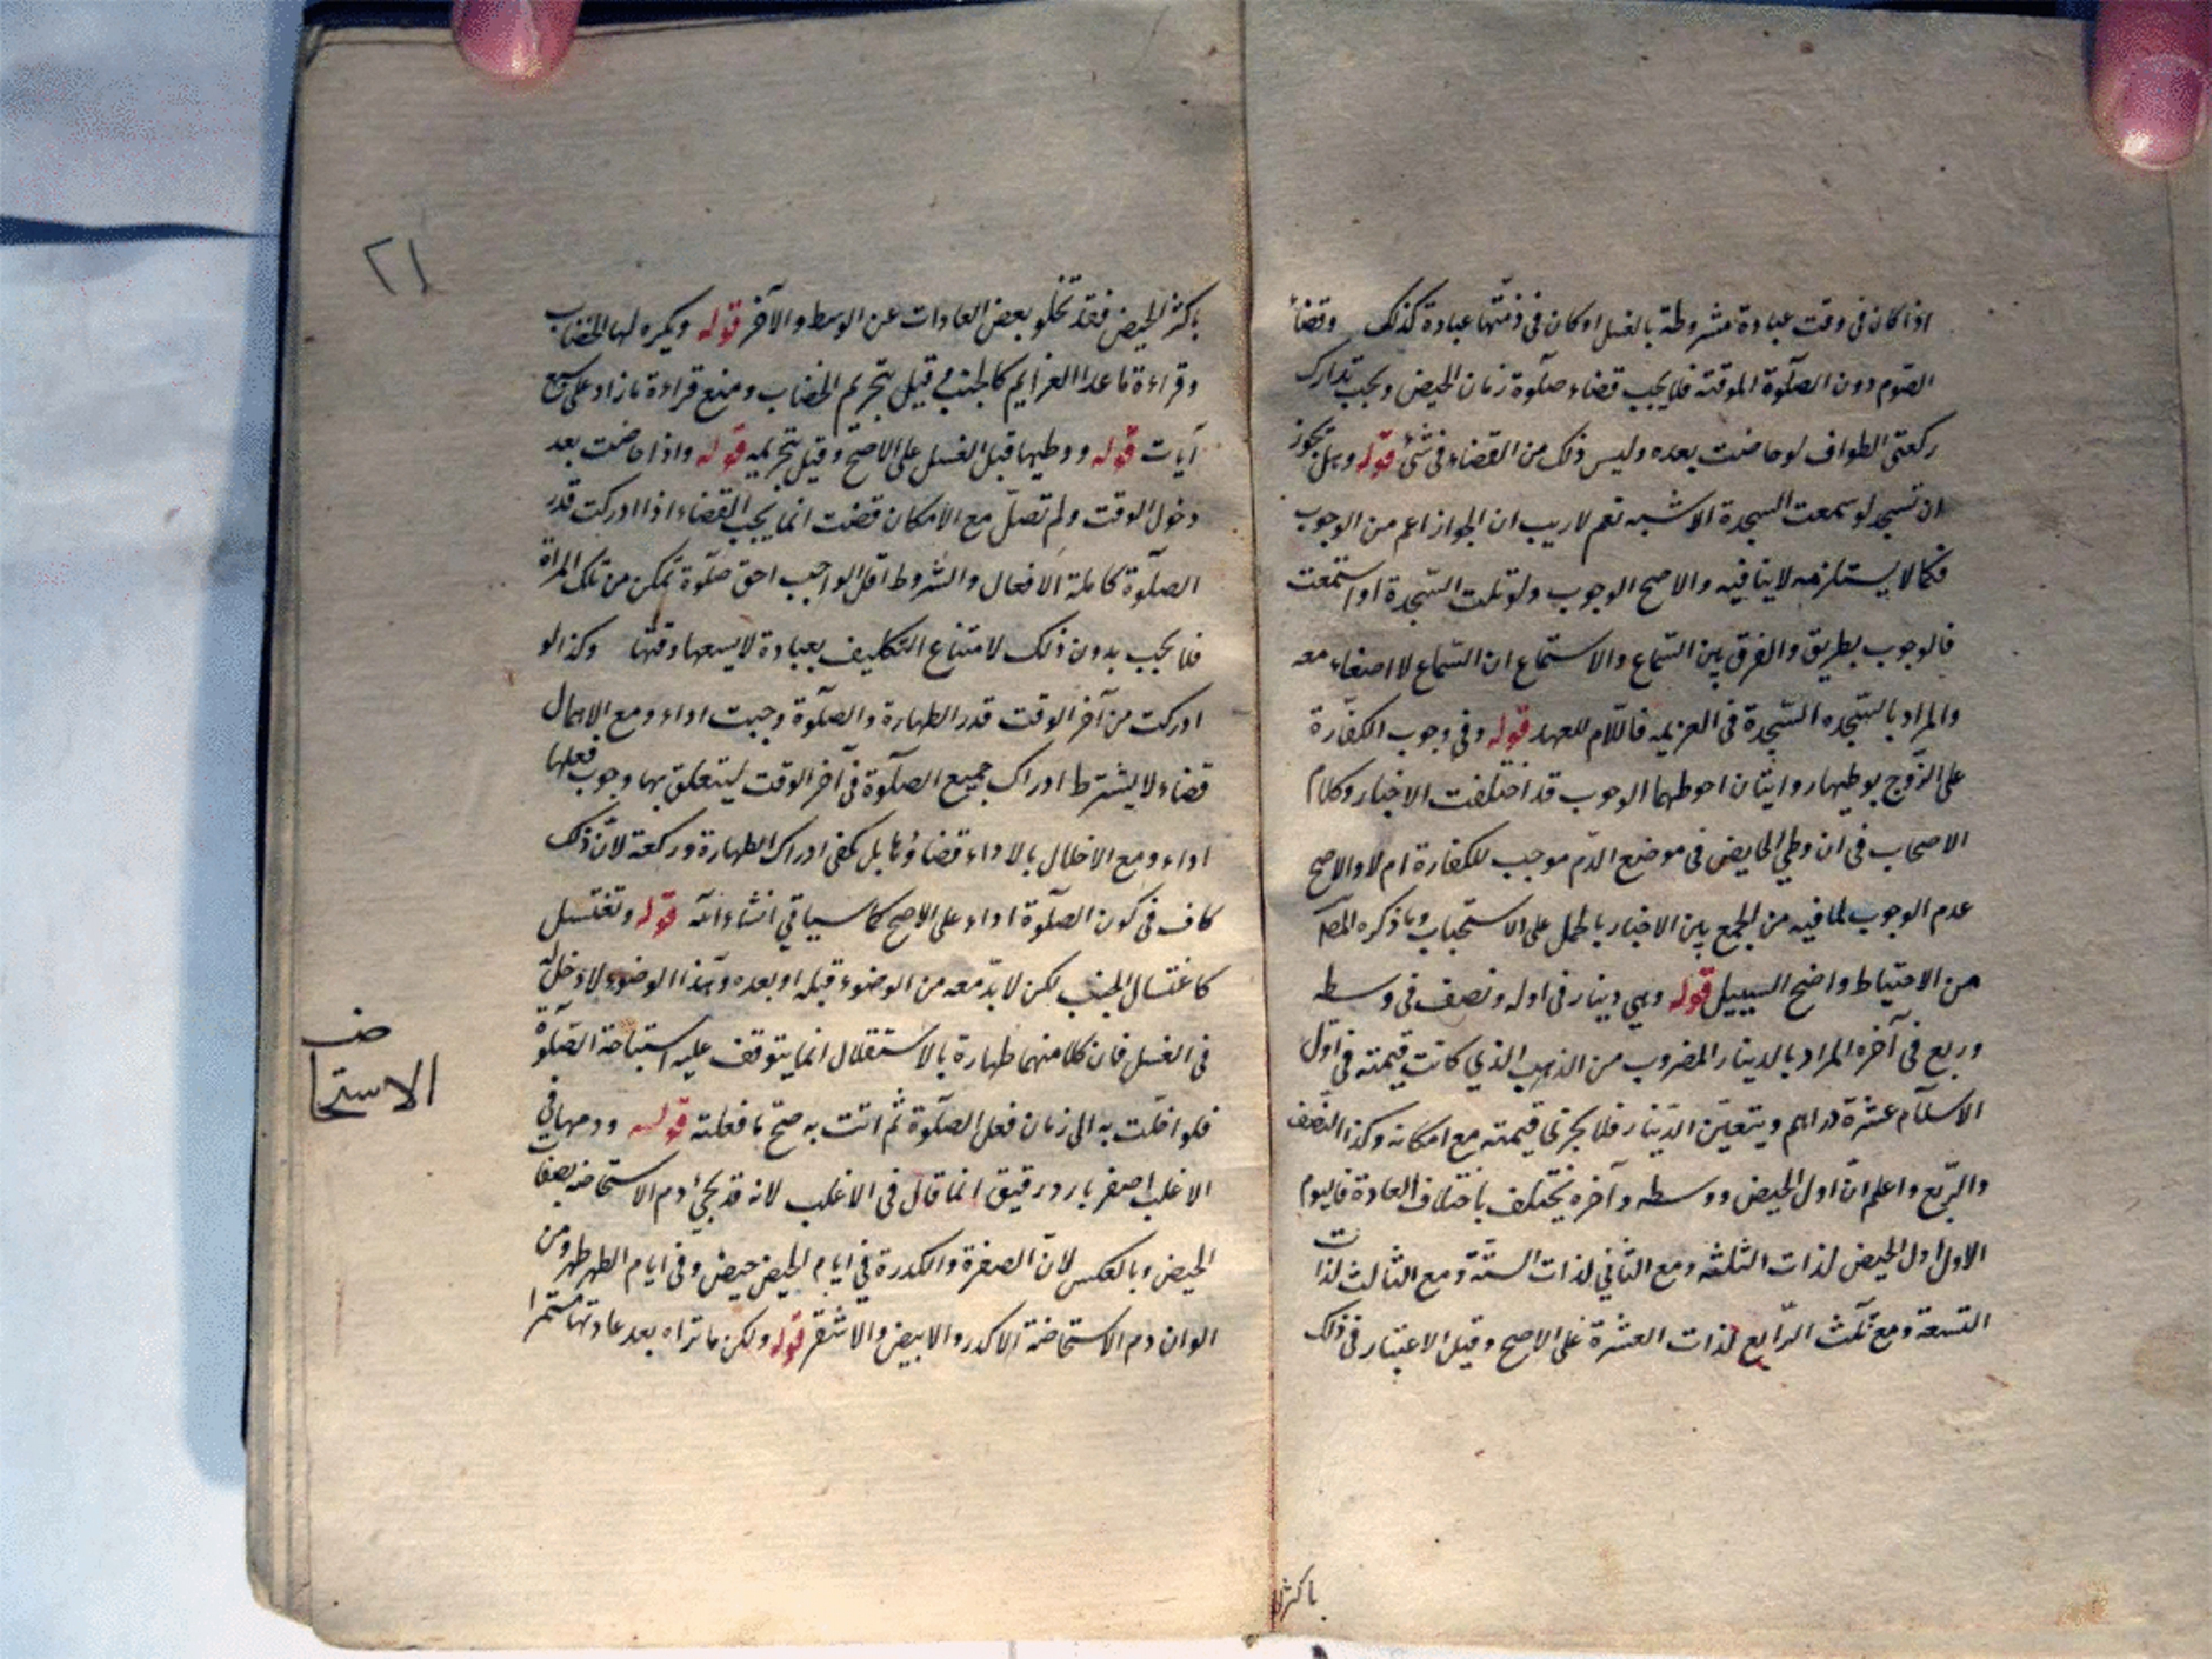 اذا كان فى وقت عبادة مشروطة بالغسل او كان فى ذمتها عبادة كذلك وقضاء
الصوم دون الصلوة الموقتة فلا يجب قضاء صلوة زمان الحيض ويجب تدارك
ركعتى الطواف لو حاضت بعده وليس ذلك من القضاء فى شئ قوله وهل يجوز
ان تسجد لو سمعت السجدة الاشبه نعم لا ريب ان الجواز اعم من الوجوب
فكما لا يستلزمه لا ينافيه والاصح الوجوب ولو تلت السجدة او استمعت
فالوجوب بطريق والفرق بين السماع والاستماع ان السماع لا اصغاء معه
والمراد بالسجده السجدة فى العزيمه فاللام للعهد قوله وفى وجوب الكفارة
على الزوج بوطيها روايتان احوطهما الوجوب قد اختلفت الاخبار وكلام
الاصحاب فى ان وطي الحايض فى موضع الدم موجب للكفارة ام لا والاصح
عدم الوجوب لما فيه من الجمع بين الاخبار بالحمل على الاستحباب وما ذكره المصـ
من الاحتياط واضح السبيل قوله وهي دينار فى اوله ونصف فى وسطه
وربع فى آخره المراد بالدينار المضروب من الذهب الذي كانت قيمته فى اول
الاسلام عشرة دراهم ويتعين الدينار فلا يجزى قيمته مع امكانه وكذا النصف
والربع واعلم ان اول الحيض ووسطه وآخره يختلف باختلاف العادة فاليوم
الاول اول الحيض لذات الثلثه ومع الثاني لذات الستة ومع الثالث لذات
التسعة ومع ثلث الرابع لذات العشرة على الاصح وقيل الاعتبار فى ذلك
باكثر
٢١
باكثر الحيض فقد تخلو بعض العادات عن الوسط والآخر قوله ويكره لها الخضاب
وقراءة ما عدا العزايم كالجنب قيل بتحريم الخضاب ومنع قراءة ما زاد على سبع
آيات قوله ووطيها قبل الغسل على الاصح وقيل بتحريمه قوله واذا حاضت بعد
دخول الوقت ولم تصل مع الامكان قضت انما يجب القضاء اذا ادركت قدر
الصلوة كاملة الافعال والشروط اقل الواجب احق صلوة تمكن من تلك المراة
فلا يجب بدون ذلك لامتناع التكليف بعبادة لا يسعها وقتها وكذا لو
ادركت من آخر الوقت قدر الطهارة والصلوة وجبت اداء ومع الاهمال
قضاء ولا يشترط ادراك جميع الصلوة فى آخر الوقت ليتعلق بها وجوب فعلها
اداء ومع الاخلال بالاداء قضاؤها بل يكفى ادراك الطهارة وركعة لان ذلك
كاف فى كون الصلوة اداء على الاصح كما سياتي انشاء الله قوله وتغتسل
كاغتسال الجنب لكن لا بد معه من الوضوء قبله او بعده وهذا الوضوء لا دخل له
فى الغسل فان كلا منهما طهارة بالاستقلال انما يتوقف عليه استباحة الصلوة
فلو اخلت به الى زمان فعل الصلوة ثم اتت به صح ما فعلته قوله ودمها فى
الاغلب اصفر بارد رقيق انما قال فى الاغلب لانه قد يجئ دم الاستحاضه بصفات
الحيض وبالعكس لان الصفرة والكدرة في ايام الحيض حيض وفى ايام الطهر طهر ومن
الوان دم الاستحاضة الاكدر والابيض والاشقر قوله ولكن ما تراه بعد عادتها مستمرا
الاستحاض